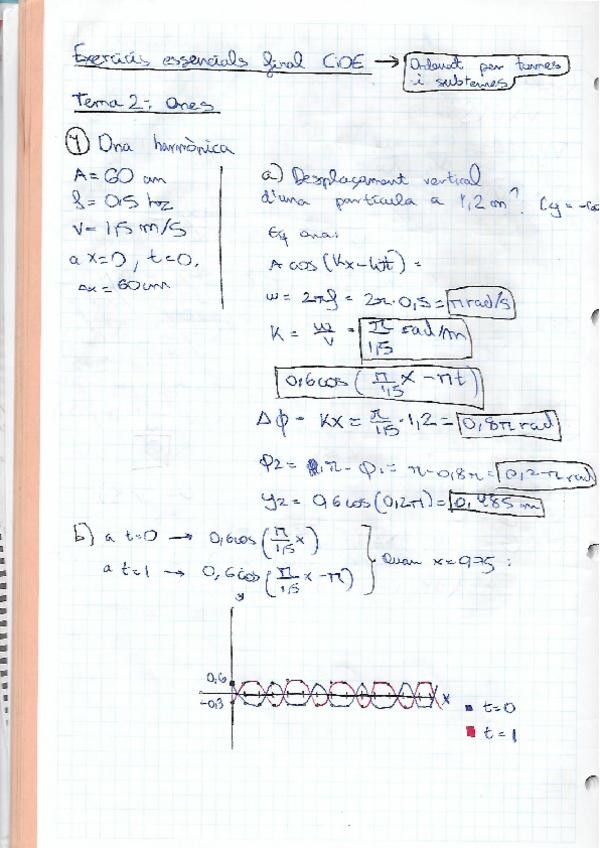 Exercicis essencials final CiOE → Ordenat per temes
i subtemes
Tema 2: Ones
1) Ona harmònica
A = 60 cm
f = 0,5 hz
V = 1,5 m/s
a x=0, t=0.
Δx = 60 cm
a) Desplaçament vertical
d'una partícula a 1,2 m?
Eq ona:
A cos(Kx - ωt) =
ω = 2πf = 2π·0,5 = π rad/s
K = ω/V = π/1,5 rad/m
0,6cos(π/1,5 x - πt)
Δϕ = Kx = π/1,5 · 1,2 = 0,8π rad
ϕ2 = π - ϕ1 = π - 0,8π = 0,2π rad
y2 = 0,6cos(0,2π) = 0,485 m
b) a t=0 → 0,6cos(π/1,5 x)
a t=1 → 0,6cos(π/1,5 x - π)
Quan x = 0,75 :
y
0,6
-0,3
x
t=0
t=1